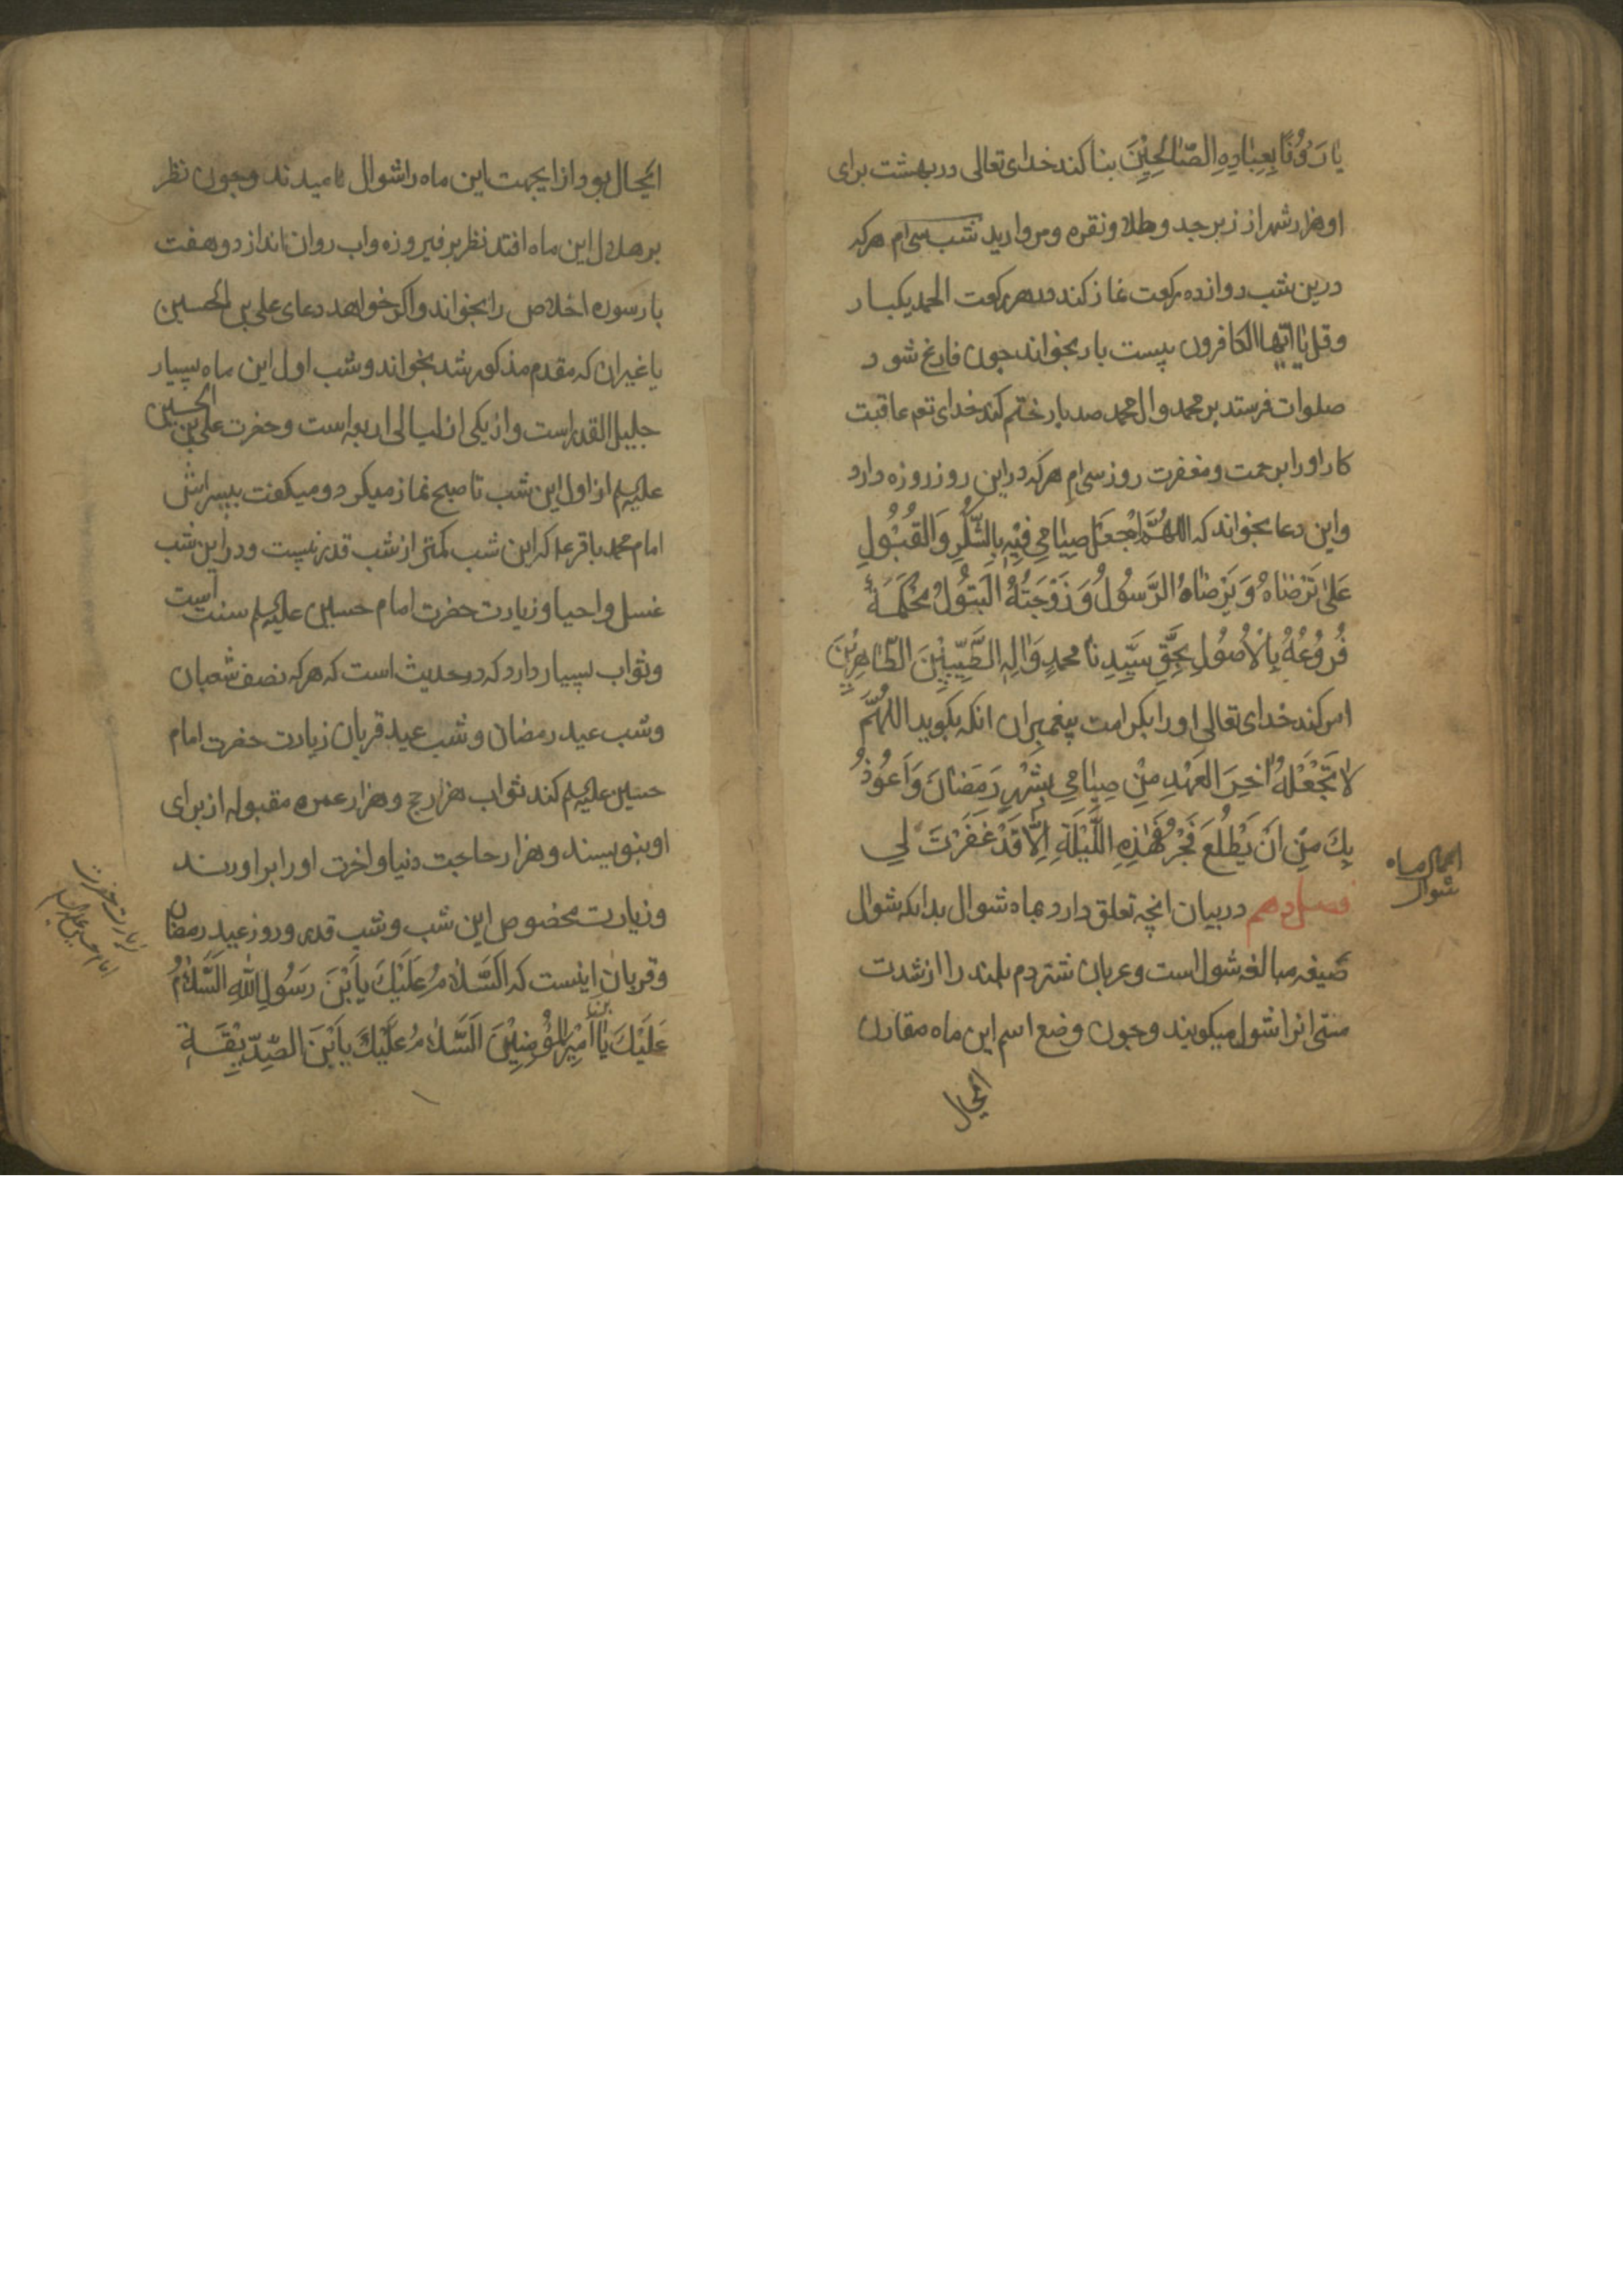 یا رَؤُفًا بِعِبَادِهِ الصَّالِحِیْنَ بنا کند خدای تعالی در بهشت برای
او هزار شهر از زبرجد و طلا و نقره و مروارید شب سی ام هرکه
درین شب دوازده رکعت نماز کند در هر رکعت الحمد یکبار
و قل یا ایها الکافرون بیست بار بخواند چون فارغ شود
صلوات فرستد بر محمد و ال محمد صد بار ختم کند خدای تع عاقبت
کار او را برحمت و مغفرت روز سی ام هرکه در این روز روزه دارد
و این دعا بخواند که اللهُمَّ اجْعَل صِیٰامِی فِیْهِ بِالشُّکْرِ وَ القُبُوُلِ
عَلیٰ تَرْضَاهُ وَ یَرْضَاهُ الرَّسُوُلُ وَ زَوْجَتُهُ الْبَتُوُلُ مُحْکَمَةً
فُرُوُعُهُ بِالْاُصُوُلِ بِحَقِّ سَیِّدِنَا محمدٍ وَ اٰلِهِ الطَّیِّبِیْنَ الطَّاهِرِیْنَ
امر کند خدای تعالی او را بکرامت پیغمبران انکه بکوید اللهُمَّ
لٰا تَجْعَلْهُ اٰخِرَ الْعَهْدِ مِنْ صِیٰامِی بِشَهْرِ رَمَضَانَ وَ اَعُوُذُ
بِکَ مِنْ اَنْ یَطْلُعَ فَجْرُ هٰذِهِ اللَّیْلَةِ اِلَّا قَدْ غَفَرْتَ لِی
فصل دهم در بیان انچه تعلق دارد بماه شوال بدانکه شوال
صیغه مبالغه شول است و عربان شتر دم بلند را از شدت
مستی انرا شول میکویند و چون وضع اسم این ماه مقارن
انحال
اعمال ماه
شوال
انحال بود از اینجهت این ماه را شوال نامیدند و چون نظر
بر هلال این ماه افتد نظر بر فیروزه و اب روان اندازد و هفت
بار سوره اخلاص را بخواند و اکر خواهد دعای علی بن الحسین
یا غیر ان که مقدم مذکور شد بخواند و شب اول این ماه بسیار
جلیل القدر است و از یکی از لیالی اربعه است و حضرت علی بن الحسین
علیه السلم از اول این شب تا صبح نماز میکرد و میکفت بپسرانش
امام محمد باقر ع که این شب کمتر از شب قدر نیست و در این شب
غسل و احیا و زیارت حضرت امام حسین علیه السلم سنت است
و ثواب بسیار دارد که در حدیث است که هرکه نصف شعبان
و شب عید رمضان و شب عید قربان زیارت حضرت امام
حسین علیه السلم کند ثواب هزار حج و هزار عمره مقبوله از برای
او بنویسند و هزار حاجت دنیا و اخرت او را براورند
و زیارت مخصوص این شب و شب قدر و روز عید رمضان
و قربان اینست که اَلسَّلٰامُ عَلَیْکَ یا بْنَ رَسُوُلِ اللهِ اَلسَّلٰامُ
عَلَیْکَ یَا بن اَمِیْرِ الْمُؤْمِنِیْنَ اَلسَّلٰامُ عَلَیْکَ یا بْنَ الصِّدّیقَةِ
زیارت حضرت
امام حسین علیه السلام